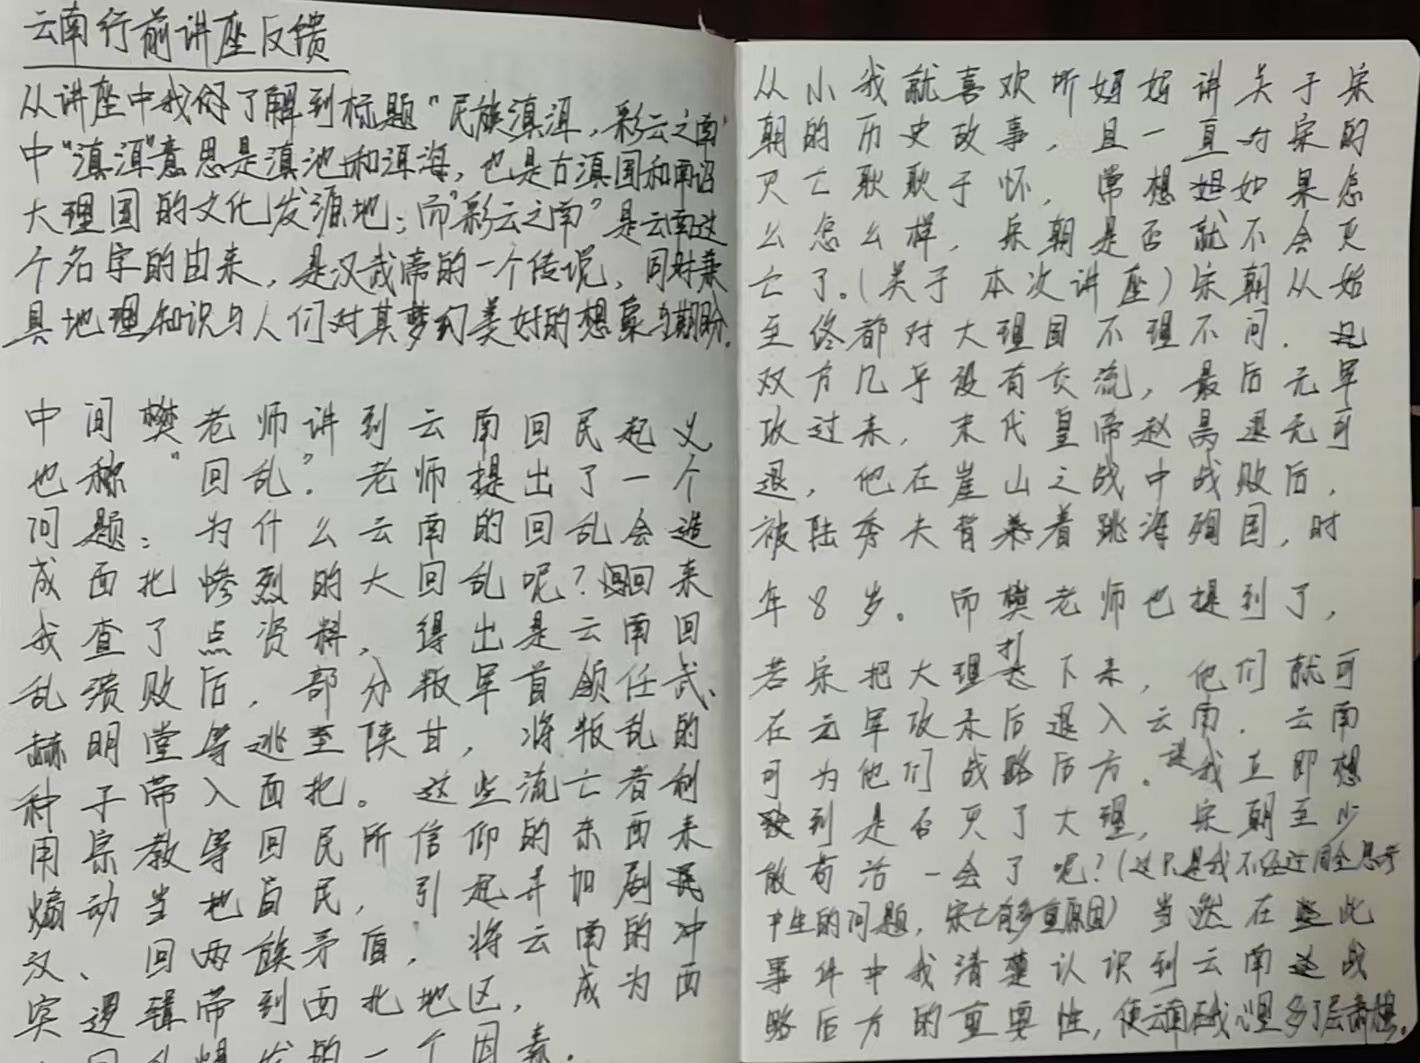 云南行前讲座反馈
从讲座中我们了解到标题“民族滇洱，彩云之南”
中“滇洱”意思是滇池和洱海，也是古滇国和南诏
大理国的文化发源地；而“彩云之南”是云南这
个名字的由来，是汉武帝的一个传说，同时兼
具地理知识与人们对其梦幻美好的想象与期盼。
中间樊老师讲到云南回民起义
也称“回乱”。老师提出了一个
问题：为什么云南的回乱会造
成西北惨烈的大回乱呢？回来
我查了点资料，得出是云南回
乱溃败后，部分叛军首领任武、
赫明堂等逃至陕甘，将叛乱的
种子带入西北。这些流亡者利
用宗教等回民所信仰的东西来
煽动当地回民，引起并加剧
汉、回两族矛盾，将云南的冲
突逻辑带到西北地区，成为西
的一个因素。
从小我就喜欢听妈妈讲关于宋
朝的历史故事，且一直对宋的
灭亡耿耿于怀，常想如果怎
么怎么样，宋朝是否就不会灭
亡了。（关于本次讲座）宋朝从始
至终都对大理国不理不问，
双方几乎没有交流，最后元军
攻过来，末代皇帝赵昺退无可
退，他在崖山之战中战败后，
被陆秀夫背着跳海殉国，时
年8岁。而樊老师也提到了，
若宋把大理打下来，他们就可
在元军攻来后退入云南，云南
可为他们战略后方。这我立即想
到是否灭了大理，宋朝至少
能苟活一会了呢？（这只是我不经过周全思考
中生的问题，宋亡有多重原因）当然在此
事件中我清楚认识到云南战
略后方的重要性，使云南在我心里多了层